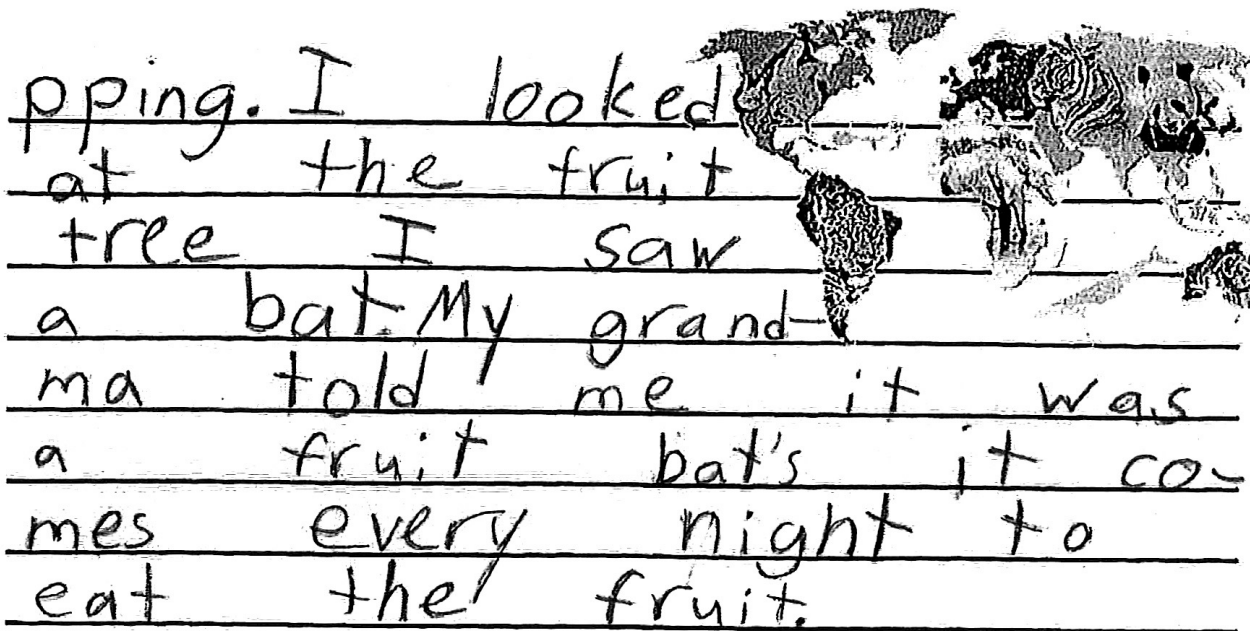 pping. I looked
at the fruit
tree I saw
a bat. My grand-
ma told me it was
a fruit bat's it co-
mes every night to
eat the fruit.